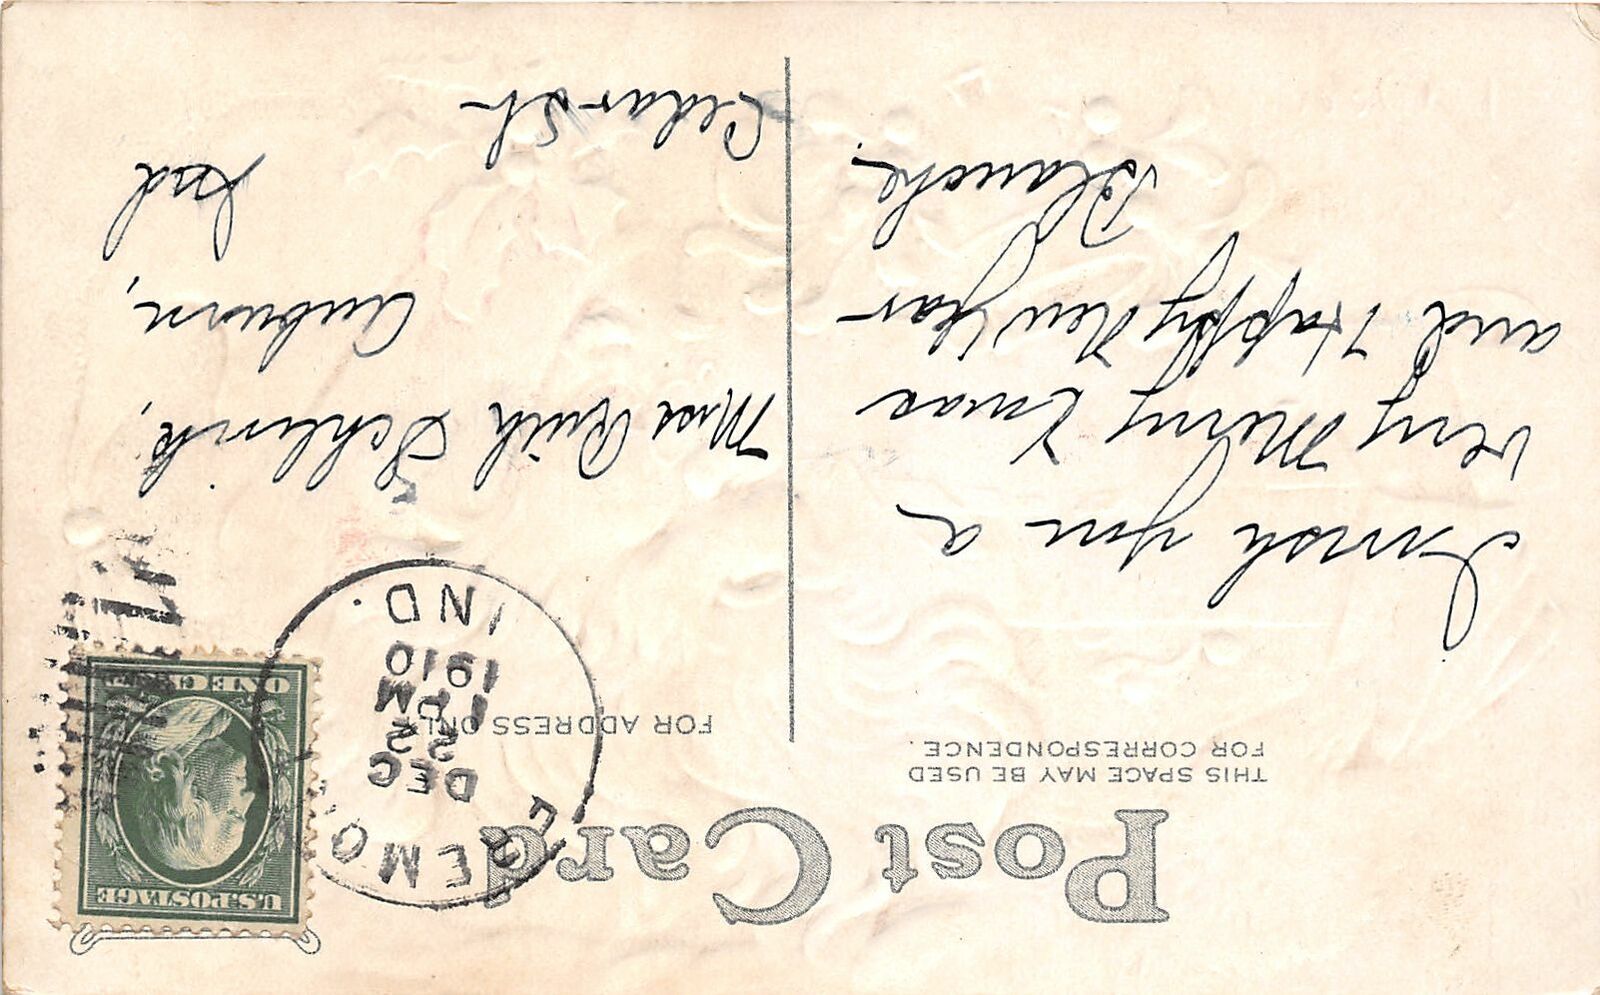 Post Card
THIS SPACE MAY BE USED
FOR CORRESPONDENCE.
FOR ADDRESS ONLY
U.S. POSTAGE
ONE CENT
EGEMO
DEC
22
1 PM
1910
IND.
I wish you a
very Merry Xmas
and Happy New Year
Blanche.
Miss Ruth Schlink,
Auburn,
Ind
Cedar St